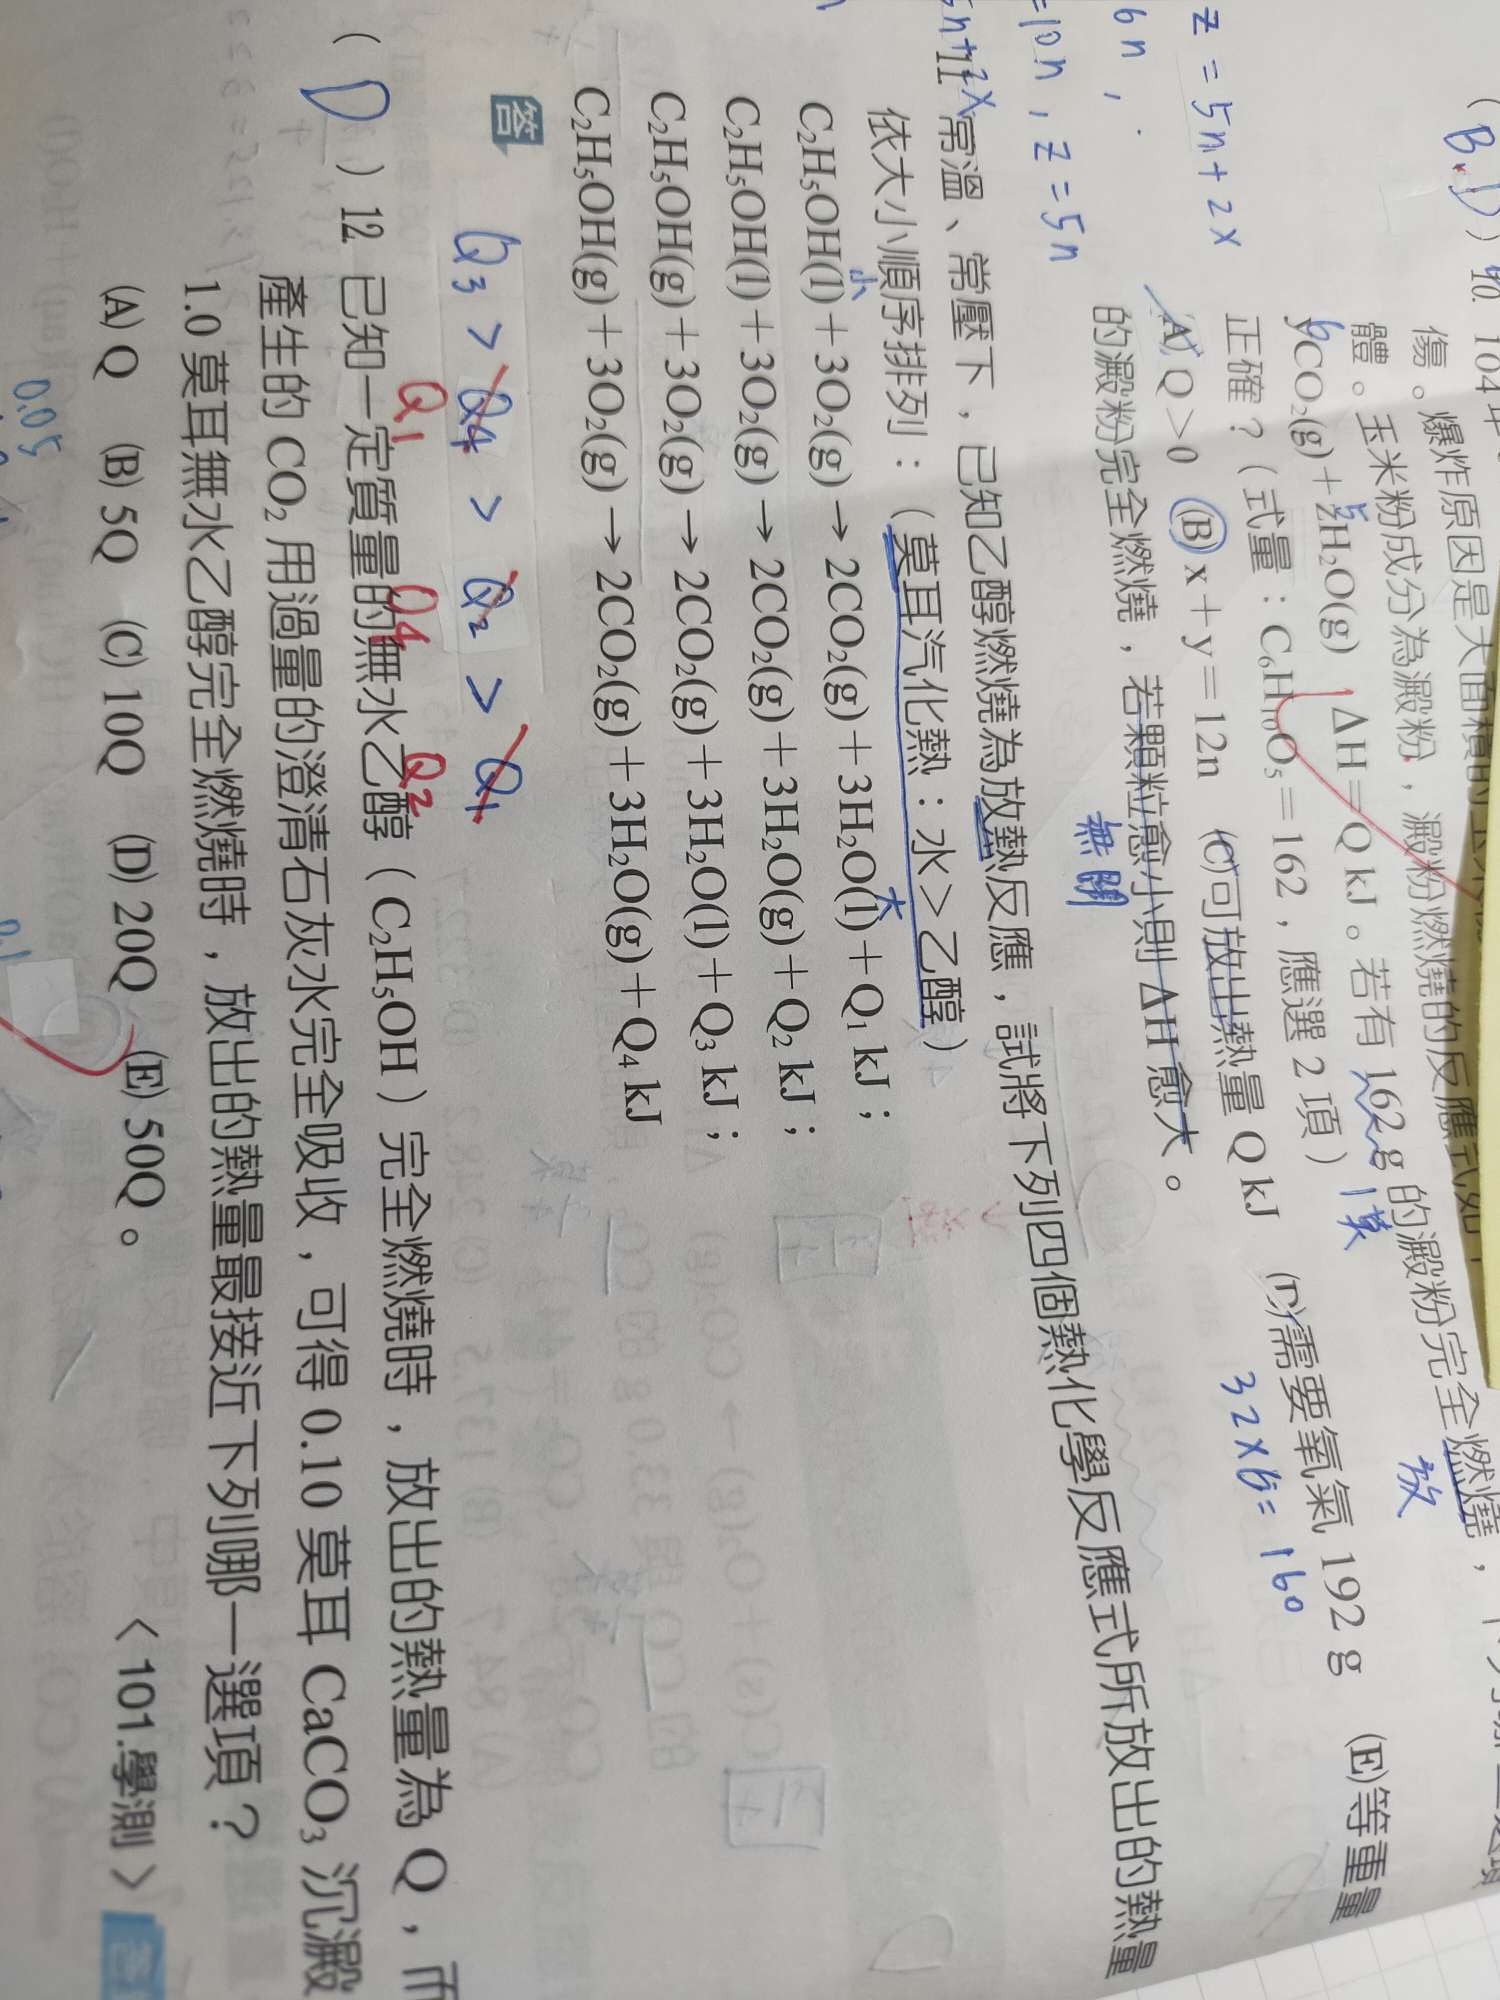 z = 5n + 2x
6n ,
= 10n , z = 5n
(B.D) 10. 104 年
傷。爆炸原因是大面積的
體。玉米粉成分為澱粉，澱粉燃燒的反應式如下
yCO₂(g)＋zH₂O(g) ΔH＝－Q kJ。若有 162 g 的澱粉完全燃燒，下列哪
6
5
1莫
放
正確？（式量：C₆H₁₀O₅＝162，應選 2 項）
(A) Q＞0 (B) x＋y＝12n (C)可放出熱量 Q kJ (D)需要氧氣 192 g (E)等重量
32×6=160
的澱粉完全燃燒，若顆粒愈小則 ΔH 愈大。
無關
11 常溫、常壓下，已知乙醇燃燒為放熱反應，試將下列四個熱化學反應式所放出的熱量
依大小順序排列：（莫耳汽化熱：水＞乙醇）
小
大
C₂H₅OH(l)＋3O₂(g)→2CO₂(g)＋3H₂O(l)＋Q₁ kJ；
C₂H₅OH(l)＋3O₂(g)→2CO₂(g)＋3H₂O(g)＋Q₂ kJ；
C₂H₅OH(g)＋3O₂(g)→2CO₂(g)＋3H₂O(l)＋Q₃ kJ；
C₂H₅OH(g)＋3O₂(g)→2CO₂(g)＋3H₂O(g)＋Q₄ kJ
答
Q₃ > Q₄ > Q₂ > Q₁
Q₁ Q₄ Q₂
( D ) 12 已知一定質量的無水乙醇（C₂H₅OH）完全燃燒時，放出的熱量為 Q，而
產生的 CO₂ 用過量的澄清石灰水完全吸收，可得 0.10 莫耳 CaCO₃ 沉澱
1.0 莫耳無水乙醇完全燃燒時，放出的熱量最接近下列哪一選項？
(A) Q (B) 5Q (C) 10Q (D) 20Q (E) 50Q。 〈101.學測〉
0.05
0.1